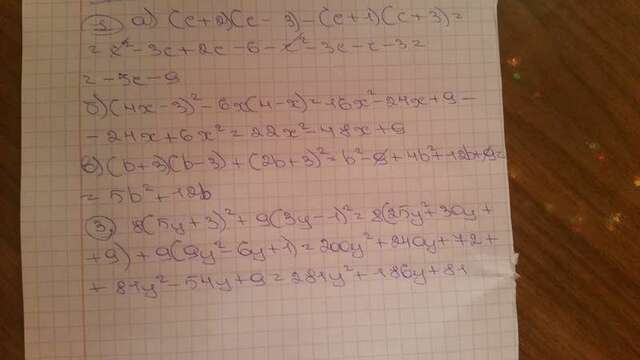 1. а) (c+2)(c-3)-(c+1)(c+3)=
= c²-3c+2c-6-c²-3c-c-3=
= -5c-9
б) (4x-3)²-6x(4-x)=16x²-24x+9-
-24x+6x²=22x²-48x+9
в) (b+3)(b-3)+(2b+3)²=b²-9+4b²+12b+9=
= 5b²+12b
3. 8(5y+3)²+9(3y-1)²=8(25y²+30y+
+9)+9(9y²-6y+1)=200y²+240y+72+
+81y²-54y+9=281y²+186y+81